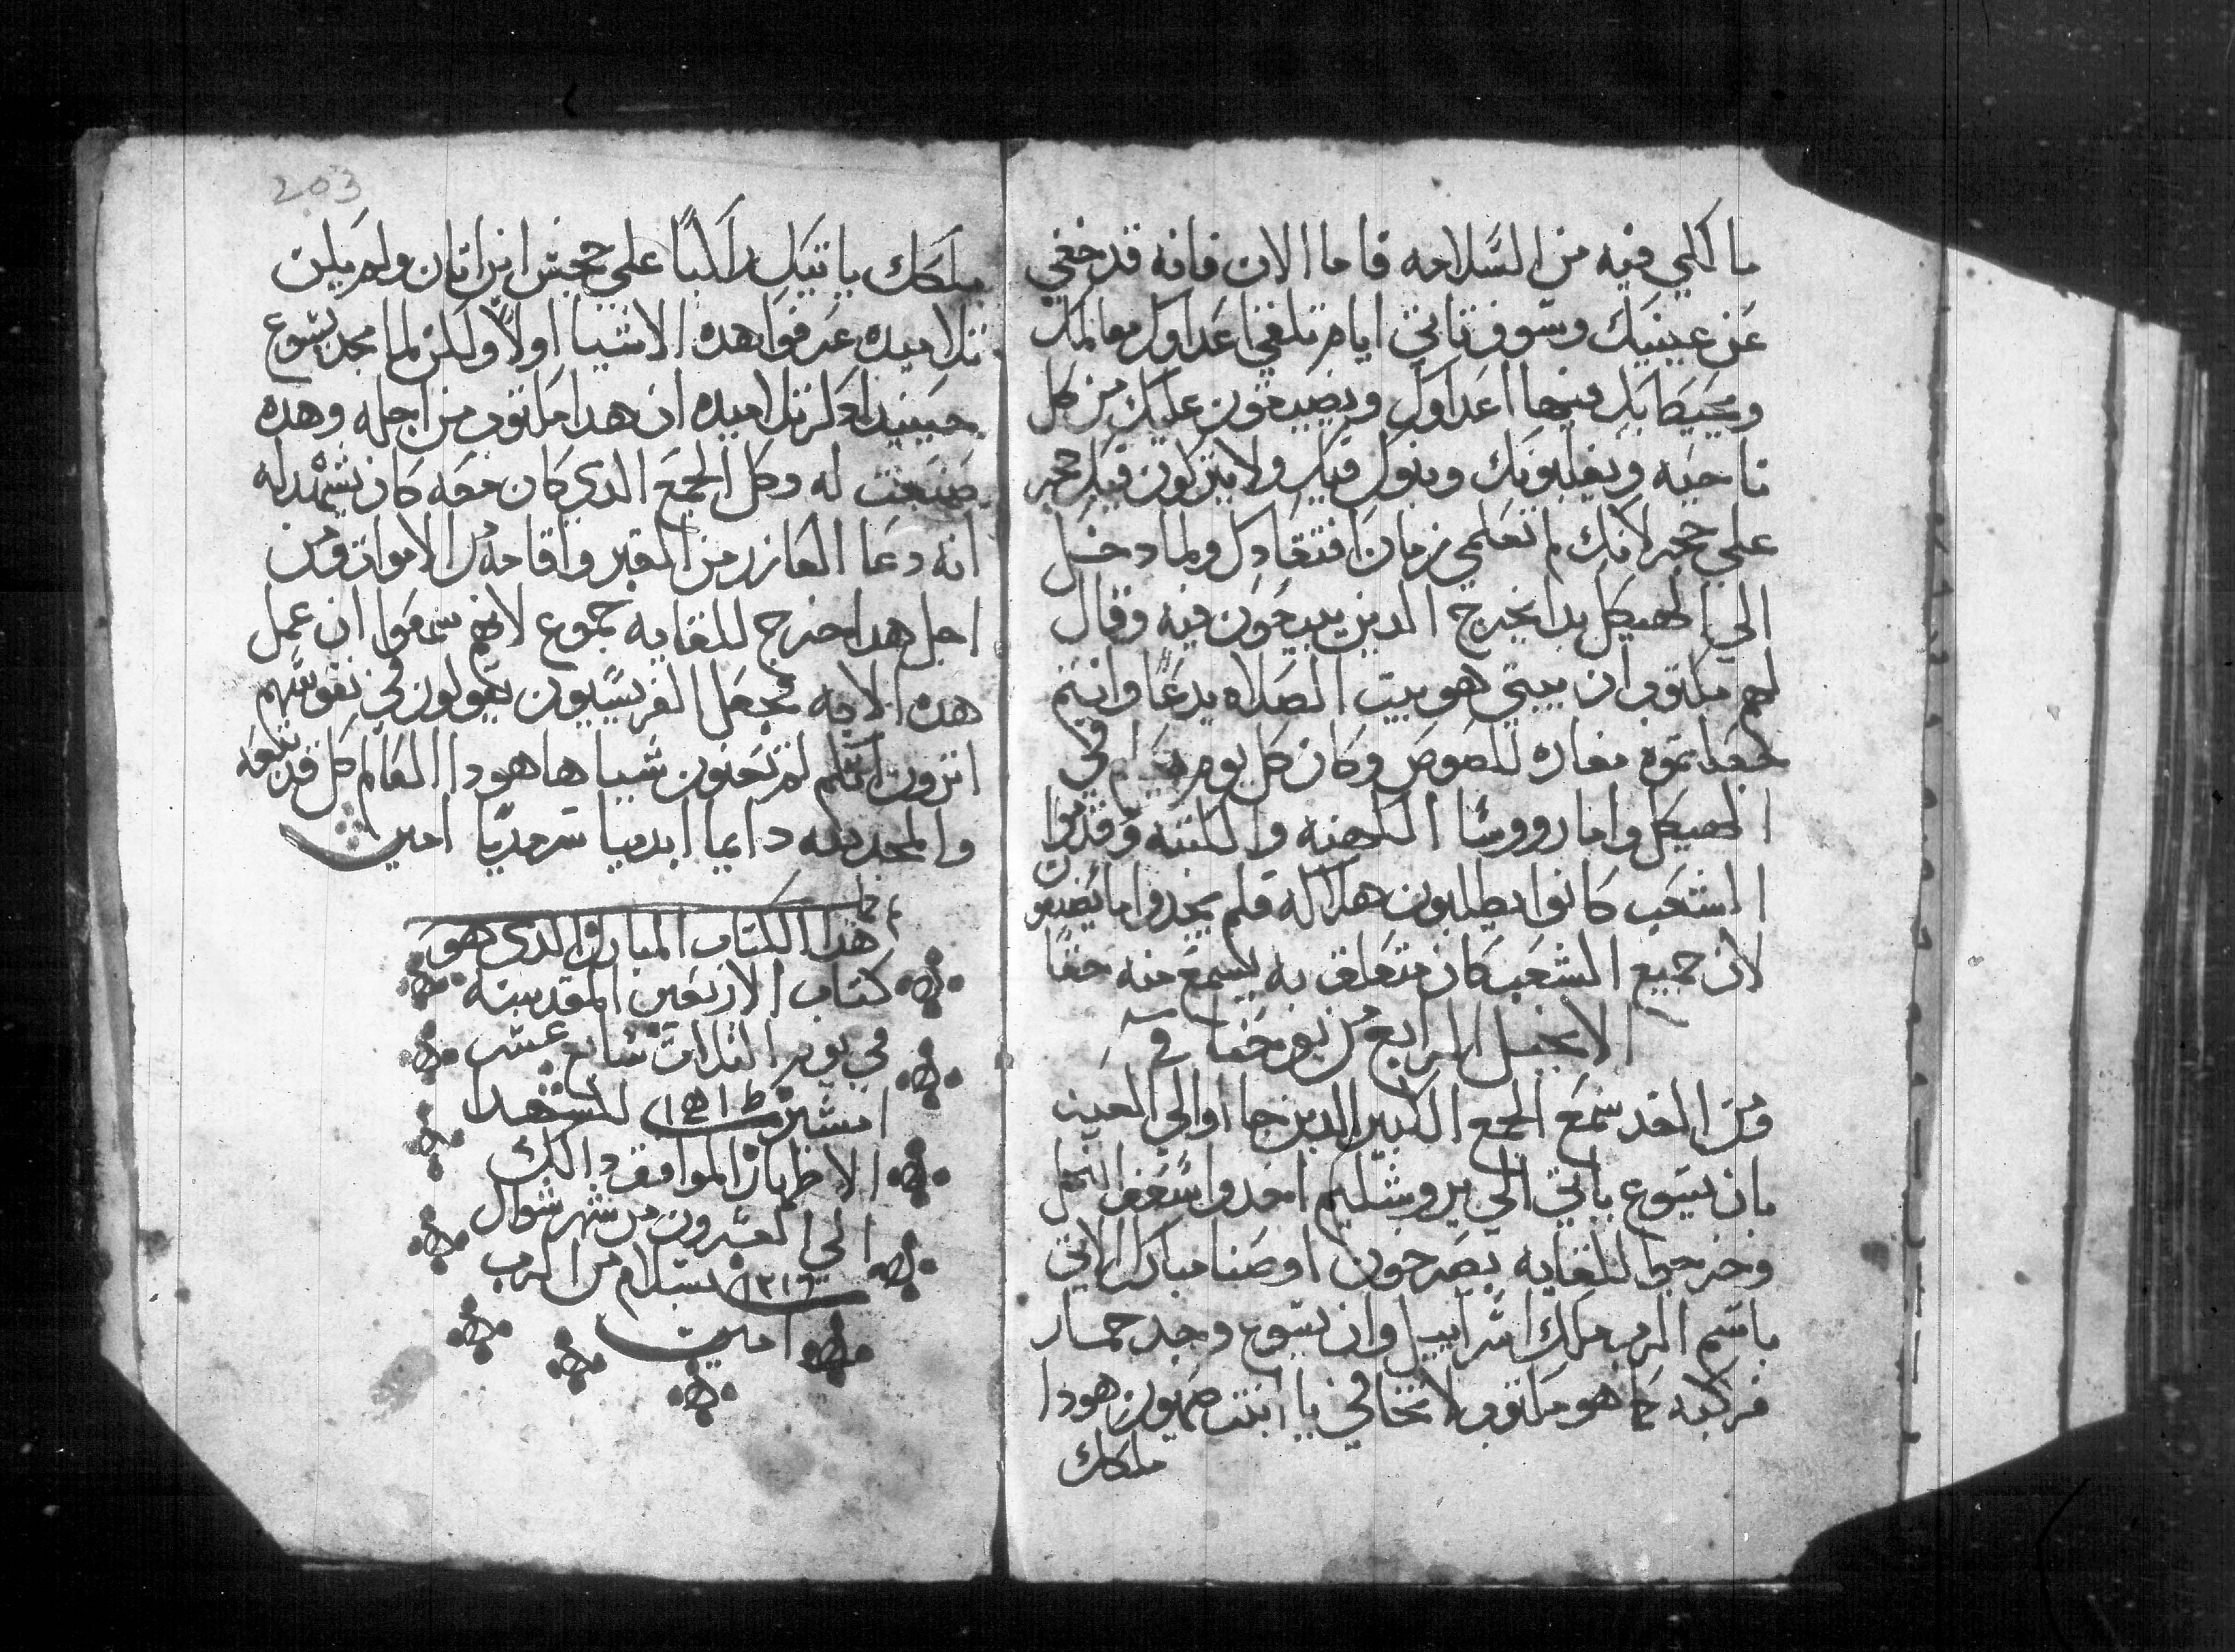 ما الكي فيه من السلامه فاما الان فانه قد خفي
عن عينيك وسوف تاتي ايام تلقي اعداوك معالمك
ويحيط بك فيها اعداوك ويضيقون عليك من كل
ناحيه ويغلبونك وبنوك فيك ولا يتركون فيك حجر
علي حجر لانك لم تعلمي زمان افتقادك ولما دخل
الي الهيكل بدا يخرج الدين يبيعون فيه وقال
لهم مكتوب ان بيتي هو بيت الصلاه يدعاً وانتم
جعلتموه مغاره للصوص وكان كل يوم يعلم في
الهيكل واما رووسا الكهنه والكتبه ومقدموا
الشعب كانوا يطلبون هلاكه فلم يجدوا ما يصنعون
لان جميع الشعب كان متعلق به يسمع منه حقا
الانجيل الرابع من يوحنا
ومن الغد سمع الجمع الكبير الدين جااوا الي العيد
بان يسوع ياتي الي يروشليم اخدوا سعف النخل
وخرجوا للقايه يصرخون اوصنا مبارك الاتي
باسم الرب ملك اسراييل وان يسوع وجد حمار
فركبه كما هو مكتوب لا تخافي يا ابنت صهيون هودا
ملكك
203
ملكك ياتيك راكباً علي جحش ابن اتان ولم يكن
تلاميده عرفوا هده الاشيا اولاً ولكن لما مجد يسوع
حينيد دكر تلاميده ان هدا مكتوب من اجله وهده
صنعت له وكل الجمع الدي كان معه كان يشهد له
انه دعا العازر من القبر واقامه من الاموات ومن
اجل هدا خرج للقايه جموع لانهم سمعوا ان عمل
هده الايه فجعل الفريسيون يقولون في نفوسهم
اترون انكم لم تحنون شييا هاهودا العالم كل قد تبعه
والمجد لله دايما ابديا سرمديا امين
تم هدا الكتاب المبارك الدي هو
كتاب الاربعين المقدسه
في يوم التلات سابع عشر
امشير للشهدا
الاطهار الموافق دالك
الي العشرون من شهر شوال
١٢١٦ بسلام من الرب
امين